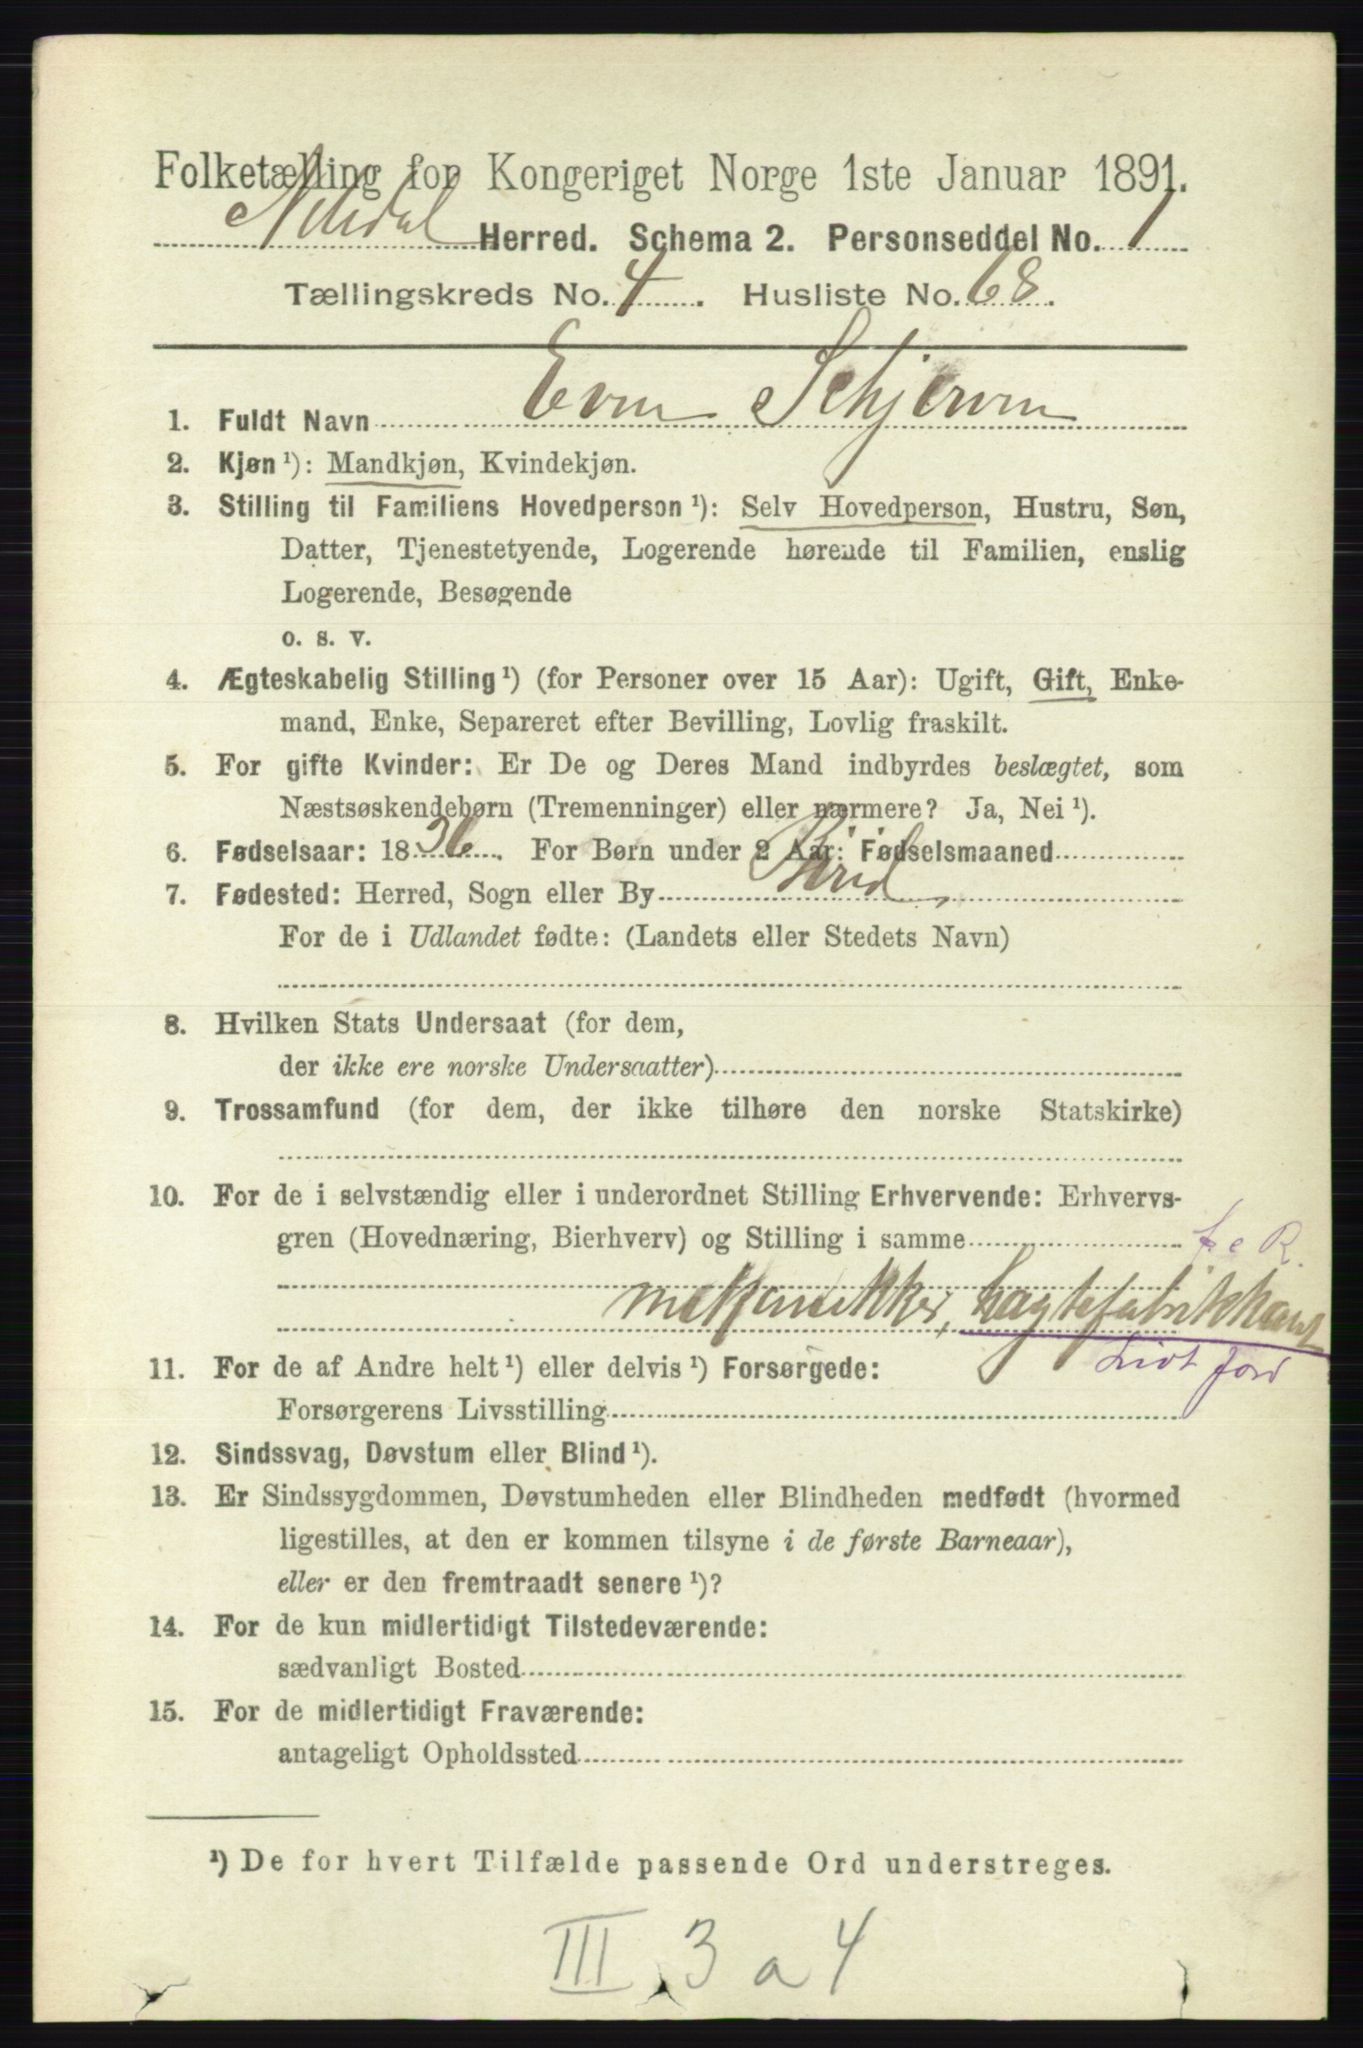 Folketælling for Kongeriget Norge 1ste Januar 1891.
Herred. Schema 2. Personseddel No. 1
Tællingskreds No. 4. Husliste No. 68.
1. Fuldt Navn Even
2. Kjøn ¹): Mandkjøn, Kvindekjøn.
3. Stilling til Familiens Hovedperson ¹): Selv Hovedperson, Hustru, Søn,
Datter, Tjenestetyende, Logerende hørende til Familien, enslig
Logerende, Besøgende
o. s. v.
4. Ægteskabelig Stilling ¹) (for Personer over 15 Aar): Ugift, Gift, Enke-
mand, Enke, Separeret efter Bevilling, Lovlig fraskilt.
5. For gifte Kvinder: Er De og Deres Mand indbyrdes beslægtet, som
Næstsøskendebørn (Tremenninger) eller nærmere? Ja, Nei ¹).
6. Fødselsaar: 1836. For Børn under 2 Aar: Fødselsmaaned
7. Fødested: Herred, Sogn eller By Birid
For de i Udlandet fødte: (Landets eller Stedets Navn)
8. Hvilken Stats Undersaat (for dem,
der ikke ere norske Undersaatter)
9. Trossamfund (for dem, der ikke tilhøre den norske Statskirke)
10. For de i selvstændig eller i underordnet Stilling Erhvervende: Erhvervs-
gren (Hovednæring, Bierhverv) og Stilling i samme
mekanikker,
Lidt jord
11. For de af Andre helt ¹) eller delvis ¹) Forsørgede:
Forsørgerens Livsstilling
12. Sindssvag, Døvstum eller Blind ¹).
13. Er Sindssygdommen, Døvstumheden eller Blindheden medfødt (hvormed
ligestilles, at den er kommen tilsyne i de første Barneaar),
eller er den fremtraadt senere ¹)?
14. For de kun midlertidigt Tilstedeværende:
sædvanligt Bosted
15. For de midlertidigt Fraværende:
antageligt Opholdssted
¹) De for hvert Tilfælde passende Ord understreges.
III 3 a 4